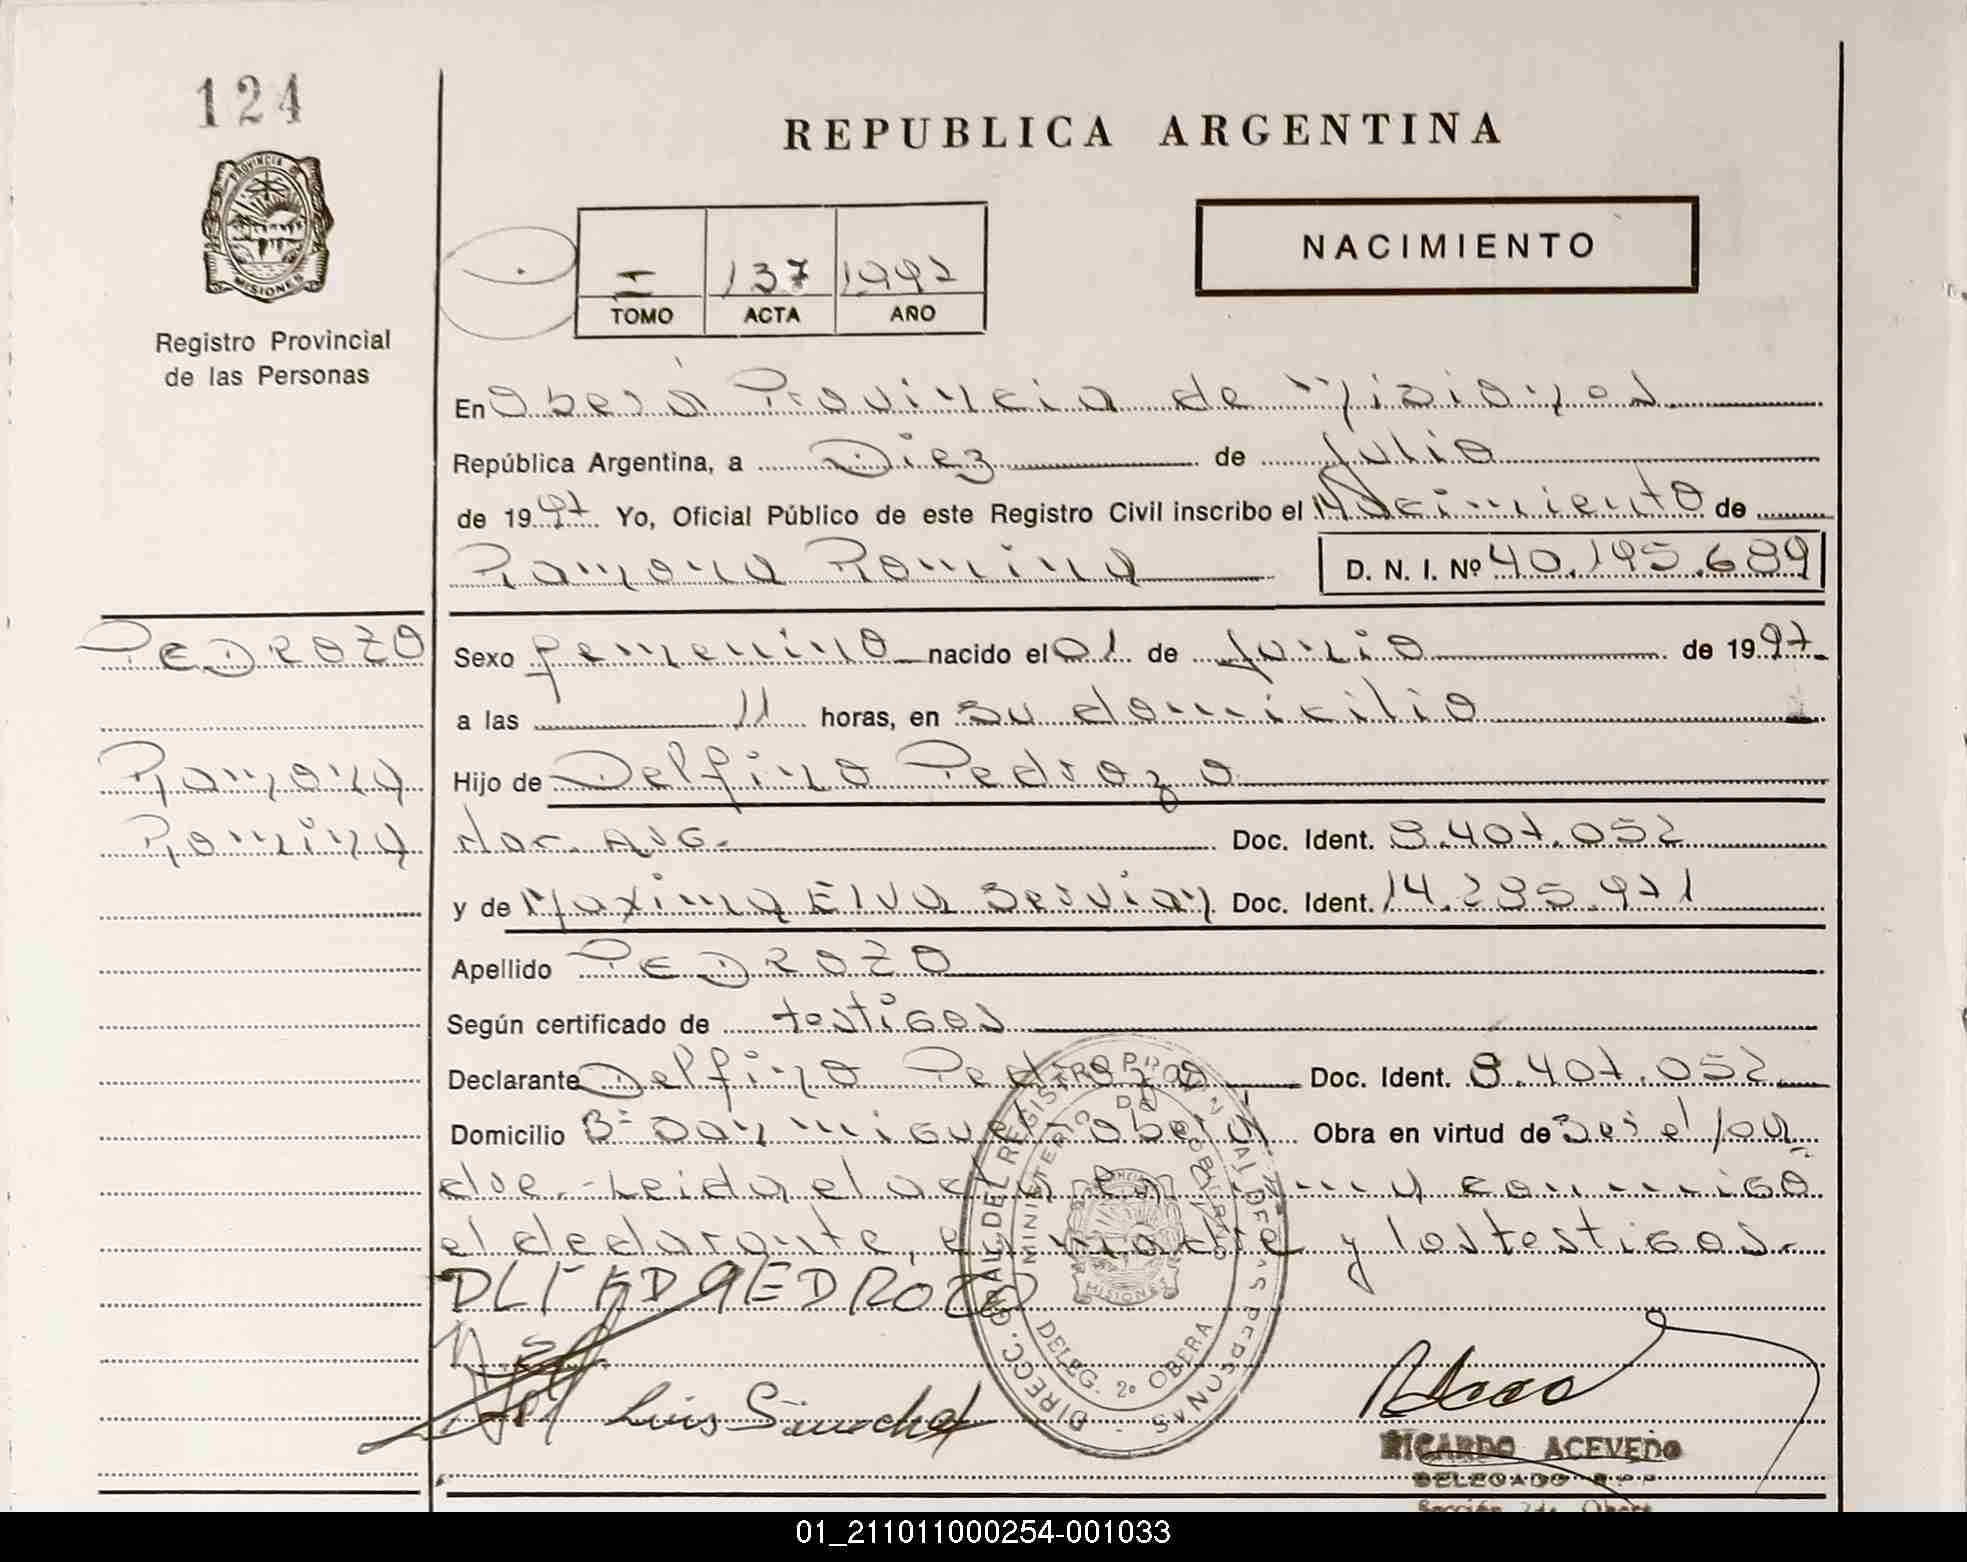 124
REPUBLICA ARGENTINA
PROVINCIA
MISIONES
NACIMIENTO
I 137 1997
TOMO ACTA AÑO
Registro Provincial
de las Personas
En Oberá Provincia de Misiones
República Argentina, a Diez de Julio
de 1997 Yo, Oficial Público de este Registro Civil inscribo el Nacimiento de
Ramona Romina D. N. I. Nº 40.195.689
PEDROZO
Sexo femenino nacido el 01 de Junio de 1997
a las 11 horas, en su domicilio
Ramona
Hijo de Delfino Pedrozo
Romina
Nac. Arg. Doc. Ident. 8.407.052
y de Maxima Elva Doc. Ident. 14.285.971
Apellido PEDROZO
Según certificado de testigos
Declarante Delfino Pedrozo Doc. Ident. 8.407.052
Domicilio Bº San Miguel Oberá Obra en virtud de ser el pa
dre.- Leida el acta firma conmigo
el declarante, la madre y los testigos.-
PEDROZO
Luis
DIRECC. GRAL. DEL REGISTRO PROVINCIAL DE LAS PERSONAS
MINISTERIO DE GOBIERNO
MISIONES
DELEG. 2º OBERA
RICARDO ACEVEDO
DELEGADO R.P.P
Sección 2da. Oberá
01_211011000254-001033